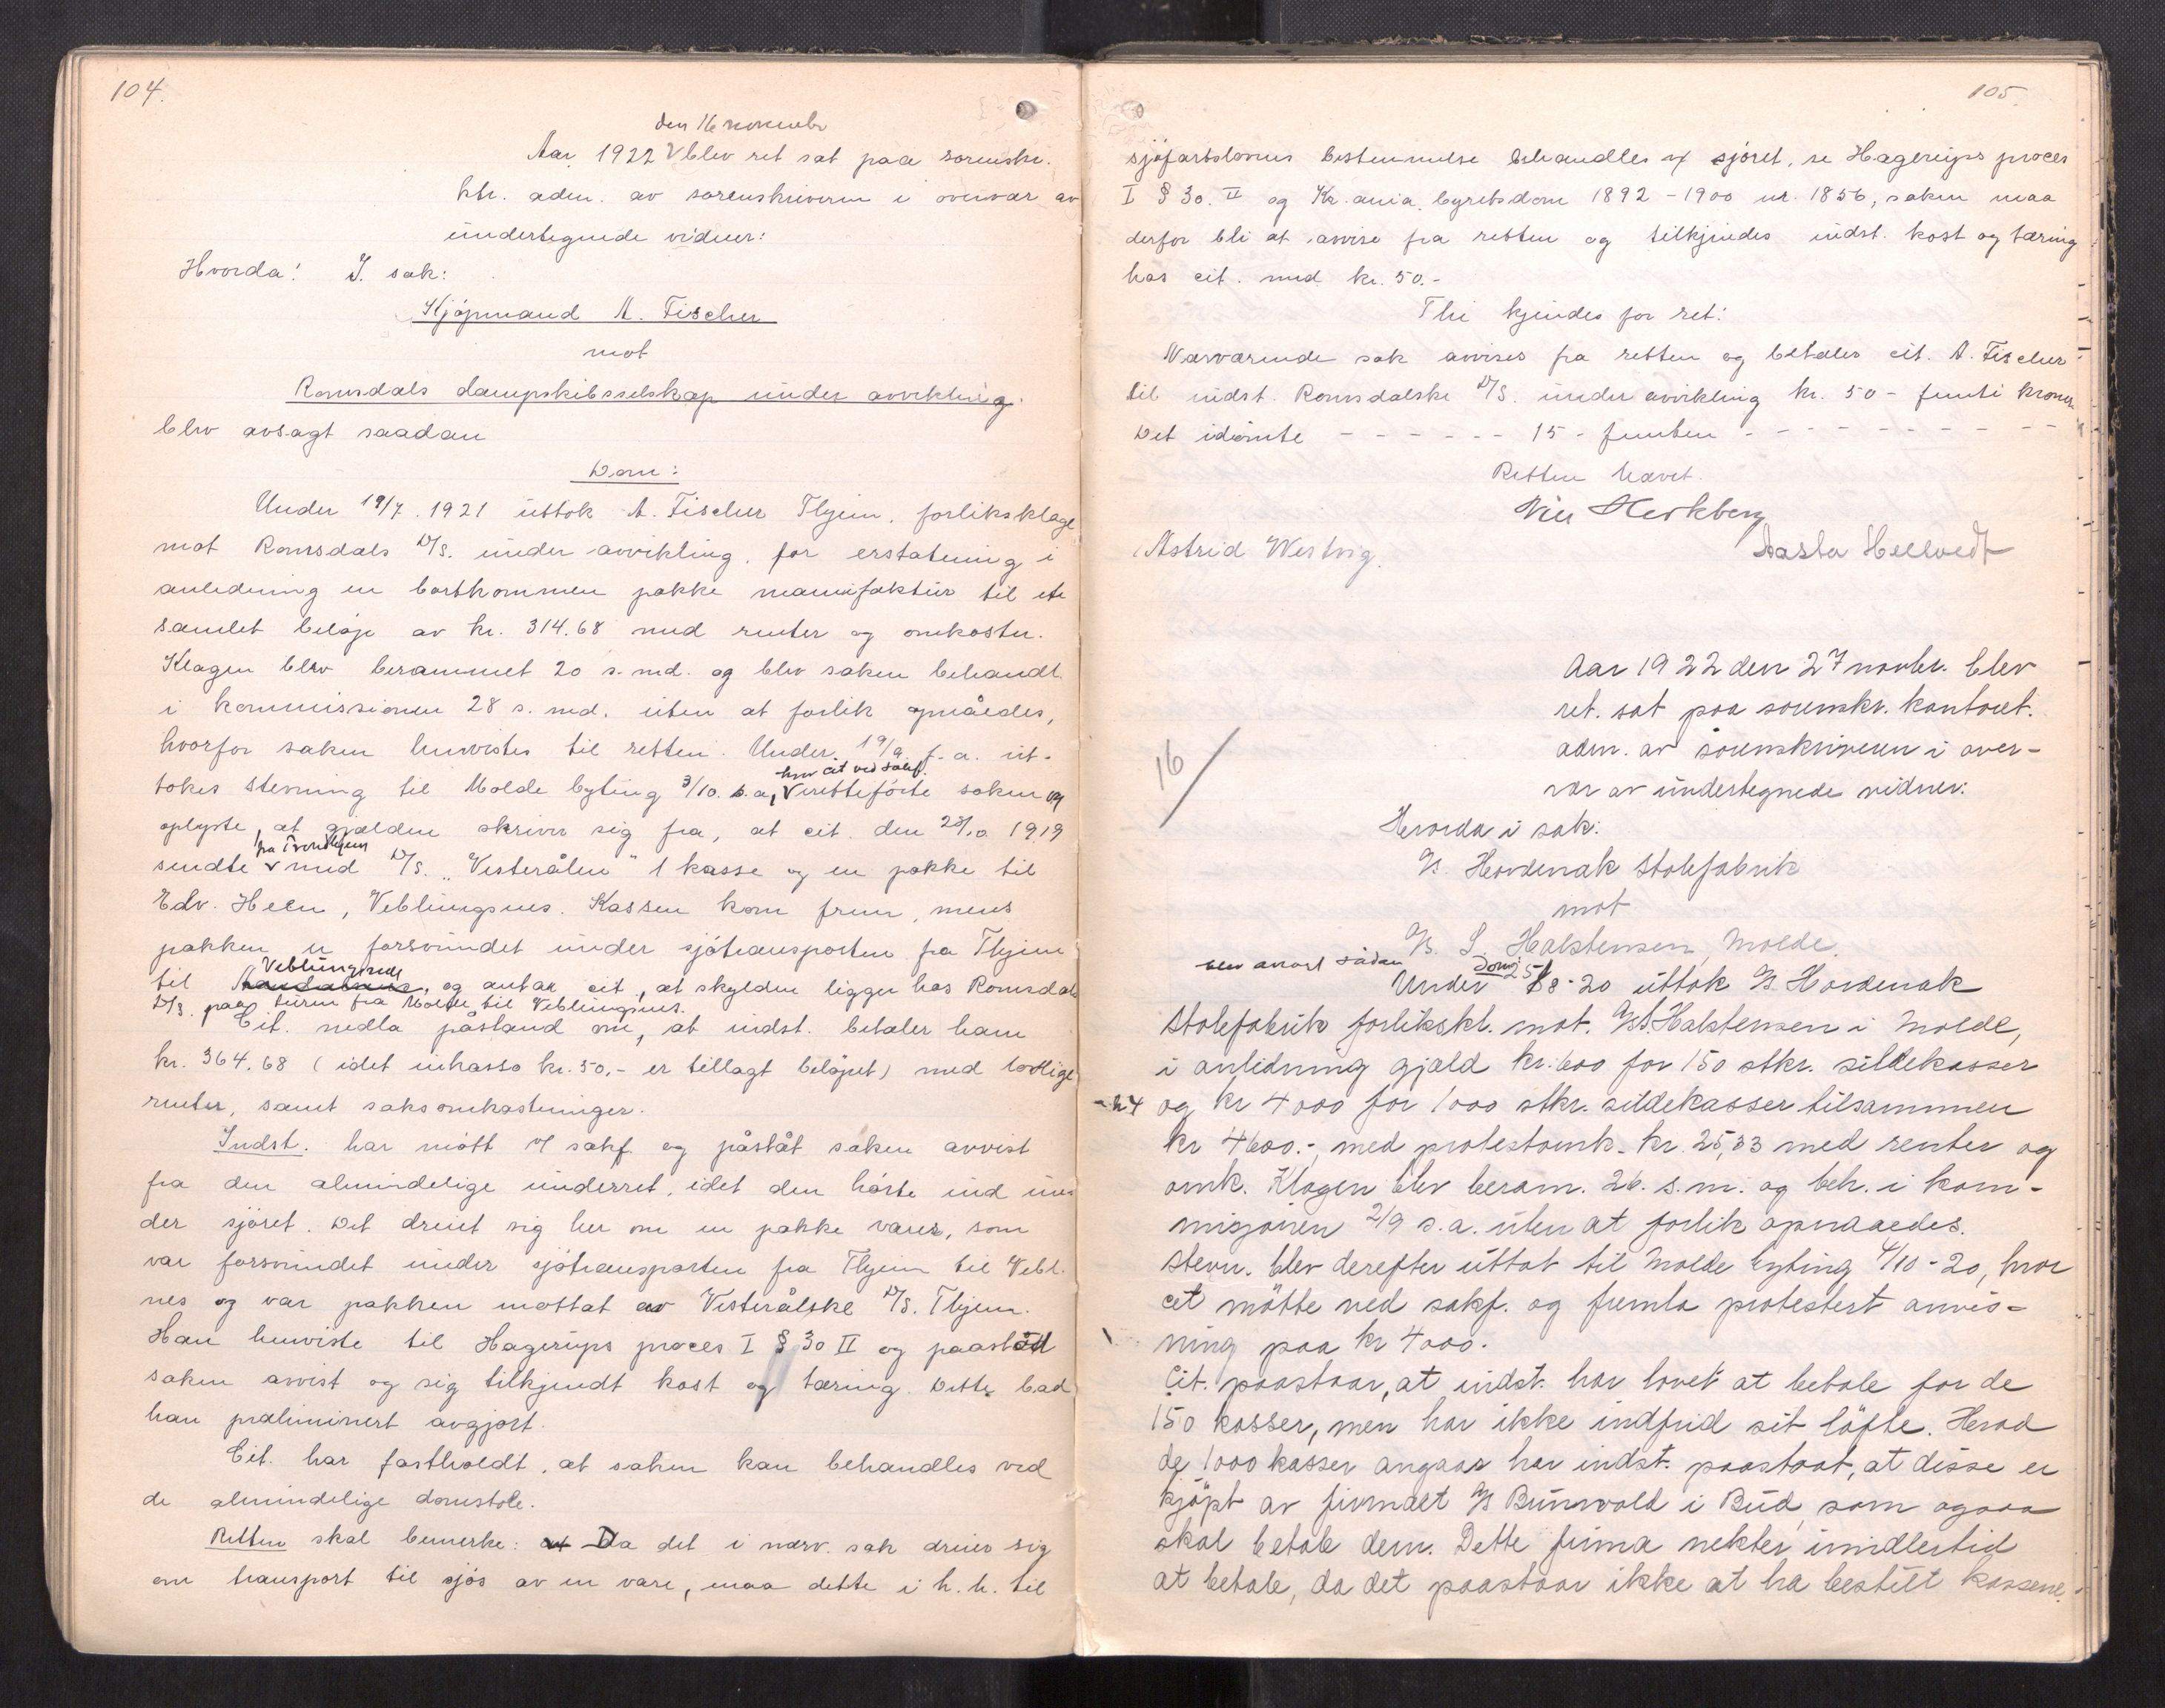 104.
den 16 novembr
Aar 1922 V blev ret sat paa sorenskr.
ktr. adm. av sorenskriveren i overvær av
undertegnede vidner:
Hvorda! I. sak:
Kjøpmand A. Fischer
mot
Romsdals dampskibsselskap under avvikling.
blev avsagt saadan
Dom:
Under 19/7. 1921 uttok A. Fischer Thjem. forliksklage
mot Romsdals D/S. under avvikling. for erstatning i
anledning en bortkommen pakke manufaktur til et
samlet beløp av kr. 314.68 med renter og omkostn.
Klagen blev berammet 20 s. md. og blev saken behandl.
i kommissionen 28 s. md. uten at forlik opnåedes,
hvorfor saken henvistes til retten. Under 19/9 f. a. ut-
tokes stevning til Molde byting 3/10. s.a, V irettefőrte saken og
hvor cit ved sakf.
oplyste, at gjælden skriver sig fra, at cit. den 23/10 1919
sendte v med D/S. "Vesterålen" 1 kasse og en pakke til
fra Trondhjem
Edv. Heen, Veblungsnes. Kassen kom frem, mens
pakken er forsvundet under sjøtransporten fra Thjem
til Aandalsnes, og antar cit, at skylden ligger hos Romsdals
Veblungsnes
D/S. paa turen fra Molde til Veblungsnes.
Cit. nedla påstand om, at indst. betaler ham
kr. 364.68 (idet inkasso kr. 50,- er tillagt beløpet) med lovlige
renter, samt saksomkostninger.
Indst. har møtt v/ sakf. og påståt saken avvist
fra den almindelige underret, idet den hørte ind un-
der sjøret. Det dreiet sig her om en pakke varer, som
var forsvundet under sjøtransporten fra Thjem til Vebl.
nes og var pakken mottat av Vesterålske D/S. Thjem.
Han henviste til Hagerups proces I § 30 II og paastod
saken avvist og sig tilkjendt kost og tæring. Dette bad
han præliminert avgjort.
Cit. har fastholdt, at saken kan behandles ved
de almindelige domstole.
Retten skal bemerke: at Da det i nærv. sak dreier sig
om transport til sjøs av en vare, maa dette i h. h. til
105.
sjøfartslovens bestemmelse behandles v/ sjøret, se Hagerups proces
I § 30. II og Kr.ania byretsdom 1892 - 1900 nr. 1856, saken maa
derfor bli at avvise fra retten og tilkjendes indst. kost og tæring
hos cit. med kr. 50.-
Thi kjendes for ret:
Nærværende sak avvises fra retten og betaler cit. A. Fischer
til indst. Romsdalske D/S. under avvikling kr. 50 - femti kroner
Det idømte - - - - - - 15 - femten - - - - - - - - - -
Retten hævet.
Astrid Westvig.
Aasta Hellvedt
Aar 1922 den 27 novbr. blev
ret. sat paa sorenskr. kontoret.
adm. av sorenskriveren i over-
vær av undertegnede vidner:
16/
Hvorda i sak:
A/S. Hordenak Stolefabrik
mot
A/S. S. Halstensen, Molde.
blev avsagt sådan
Dom:
Under 25/8-20 uttok A/S Hordenak
Stolefabrik forlikskl. mot. A/S S. Halstensen i Molde,
i anledning gjæld kr. 600 for 150 stkr. sildekasser
og kr 4000 for 1000 stkr. sildekasser tilsammen
kr 4600.- med protestomk. kr. 25,33 med renter og
omk. Klagen blev beram. 26. s. m. og beh. i kom-
misjonen 2/9 s. a. uten at forlik opnaaedes.
Stevn. blev derefter uttat til Molde byting 4/10 - 20, hvor
cit møtte ved sakf. og fremla protestert anvis-
ning paa kr 4000.
Cit. paastaar, at indst. har lovet at betale for de
150 kasser, men har ikke indfrid sit løfte. Hvad
de 1000 kasser angaar har indst. paastaat, at disse er
kjøpt av firmaet A/S Bunvold i Bud, som ogsaa
skal betale dem. Dette firma nekter imidlertid
at betale, da det paastaar ikke at ha bestilt kassene.